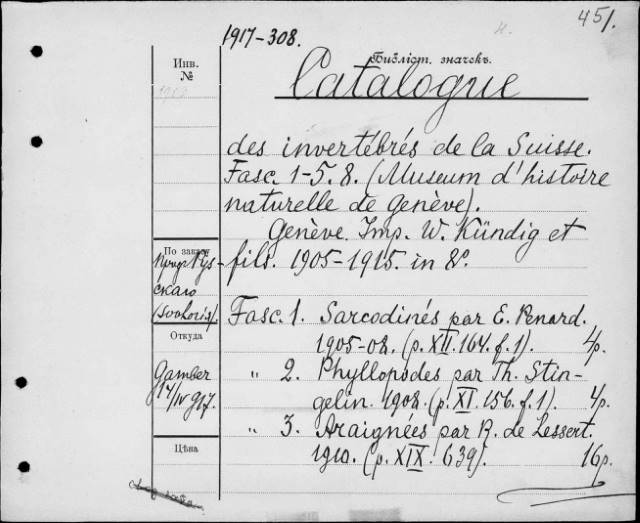 451.
1917-308.
Библіот. значекъ.
Инв.
№
Catalogue
des invertébrés de la Suisse.
Fasc. 1-5. 8. (Museum d'histoire
naturelle de Genève).
Genève. Imp. W. Kündig et
fils. 1905-1915. in 8º.
По заказу
скаго
Откуда
Gamber
14/IV 917.
Цѣна
Fasc. 1. Sarcodinés par E. Penard.
1905-08. (p. XII. 164. f. 1). 4р.
" 2. Phyllopodes par Th. Stin-
gelin. 1908. (p. XI. 156. f. 1). 4р.
" 3. Araignées par R. de Lessert.
1910. (p. XIX. 639). 16р.